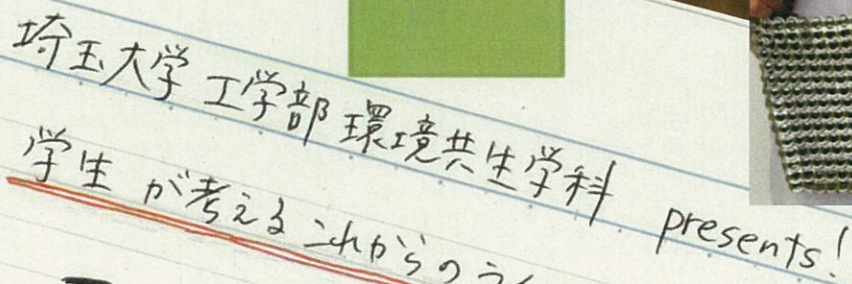 埼玉大学 工学部 環境共生学科 presents!
学生が考えるこれからの